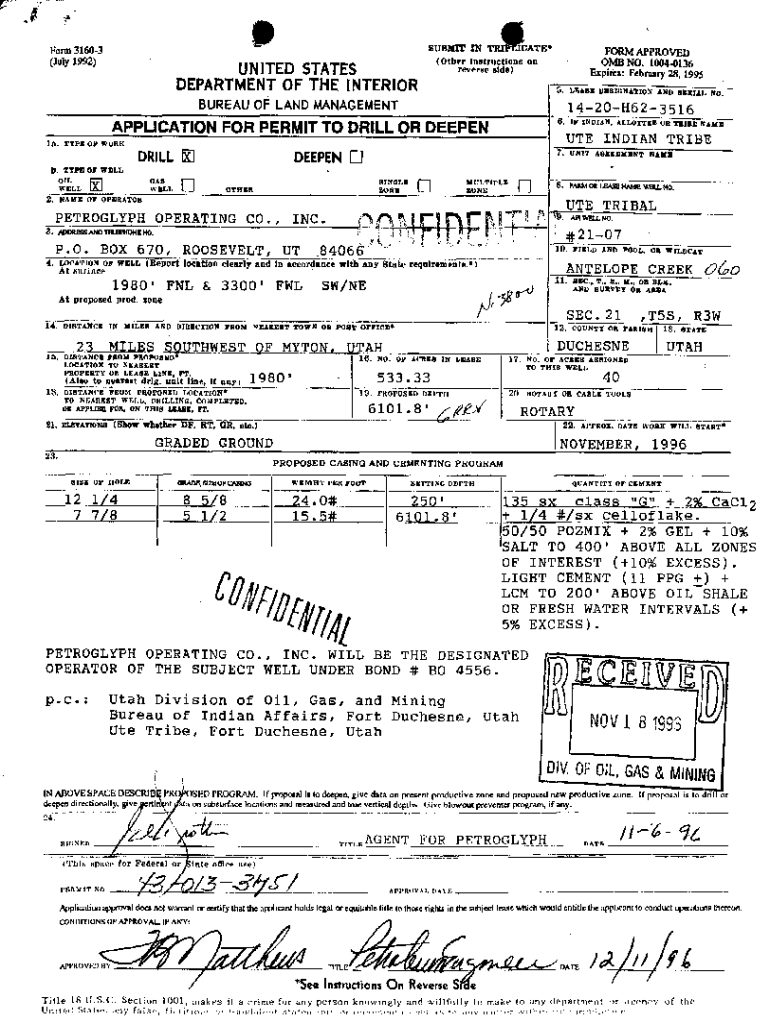 Form 3160-3
(July 1992)
SUBMIT IN TRIPLICATE*
(Other instructions on
reverse side)
FORM APPROVED
OMB NO. 1004-0136
Expires: February 28, 1995
UNITED STATES
DEPARTMENT OF THE INTERIOR
BUREAU OF LAND MANAGEMENT
5. LEASE DESIGNATION AND SERIAL NO.
14-20-H62-3516
APPLICATION FOR PERMIT TO DRILL OR DEEPEN
6. IF INDIAN, ALLOTTEE OR TRIBE NAME
UTE INDIAN TRIBE
1a. TYPE OF WORK
DRILL X DEEPEN
7. UNIT AGREEMENT NAME
b. TYPE OF WELL
OIL WELL X GAS WELL OTHER SINGLE ZONE MULTIPLE ZONE
8. FARM OR LEASE NAME, WELL NO.
UTE TRIBAL
2. NAME OF OPERATOR
PETROGLYPH OPERATING CO., INC.
CONFIDENTIAL
9. API WELL NO.
#21-07
3. ADDRESS AND TELEPHONE NO.
P.O. BOX 670, ROOSEVELT, UT 84066
10. FIELD AND POOL, OR WILDCAT
ANTELOPE CREEK 060
4. LOCATION OF WELL (Report location clearly and in accordance with any State requirements.*)
At surface
1980' FNL & 3300' FWL SW/NE
At proposed prod. zone
11. SEC., T., R., M., OR BLK.
AND SURVEY OR AREA
SEC. 21 ,T5S, R3W
14. DISTANCE IN MILES AND DIRECTION FROM NEAREST TOWN OR POST OFFICE*
23 MILES SOUTHWEST OF MYTON, UTAH
12. COUNTY OR PARISH
DUCHESNE
13. STATE
UTAH
15. DISTANCE FROM PROPOSED*
LOCATION TO NEAREST
PROPERTY OR LEASE LINE, FT.
(Also to nearest drlg. unit line, if any)
1980'
16. NO. OF ACRES IN LEASE
533.33
17. NO. OF ACRES ASSIGNED
TO THIS WELL
40
18. DISTANCE FROM PROPOSED LOCATION*
TO NEAREST WELL, DRILLING, COMPLETED,
OR APPLIED FOR, ON THIS LEASE, FT.
19. PROPOSED DEPTH
6101.8' GRRV
20. ROTARY OR CABLE TOOLS
ROTARY
21. ELEVATIONS (Show whether DF, RT, GR, etc.)
GRADED GROUND
22. APPROX. DATE WORK WILL START*
NOVEMBER, 1996
23.
PROPOSED CASING AND CEMENTING PROGRAM
SIZE OF HOLE GRADE, SIZE OF CASING WEIGHT PER FOOT SETTING DEPTH QUANTITY OF CEMENT
12 1/4 8 5/8 24.0# 250' 135 sx class "G" + 2% CaCl2
7 7/8 5 1/2 15.5# 6101.8' + 1/4 #/sx celloflake.
50/50 POZMIX + 2% GEL + 10%
SALT TO 400' ABOVE ALL ZONES
OF INTEREST (+10% EXCESS).
LIGHT CEMENT (11 PPG +) +
LCM TO 200' ABOVE OIL SHALE
OR FRESH WATER INTERVALS (+
5% EXCESS).
CONFIDENTIAL
PETROGLYPH OPERATING CO., INC. WILL BE THE DESIGNATED
OPERATOR OF THE SUBJECT WELL UNDER BOND # BO 4556.
p.c.: Utah Division of Oil, Gas, and Mining
Bureau of Indian Affairs, Fort Duchesne, Utah
Ute Tribe, Fort Duchesne, Utah
RECEIVED
NOV 18 1996
DIV. OF OIL, GAS & MINING
IN ABOVE SPACE DESCRIBE PROPOSED PROGRAM. If proposal is to deepen, give data on present productive zone and proposed new productive zone. If proposal is to drill or
deepen directionally, give pertinent data on subsurface locations and measured and true vertical depths. Give blowout preventer program, if any.
24.
SIGNED TITLE AGENT FOR PETROGLYPH DATE 11-6-96
(This space for Federal or State office use)
PERMIT NO. 43-013-3751 APPROVAL DATE
Application approval does not warrant or certify that the applicant holds legal or equitable title to those rights in the subject lease which would entitle the applicant to conduct operations thereon.
CONDITIONS OF APPROVAL, IF ANY:
APPROVED BY Matthews TITLE Petroleum Engineer DATE 12/11/96
*See Instructions On Reverse Side
Title 18 U.S.C. Section 1001, makes it a crime for any person knowingly and willfully to make to any department or agency of the
United States any false, fictitious or fraudulent